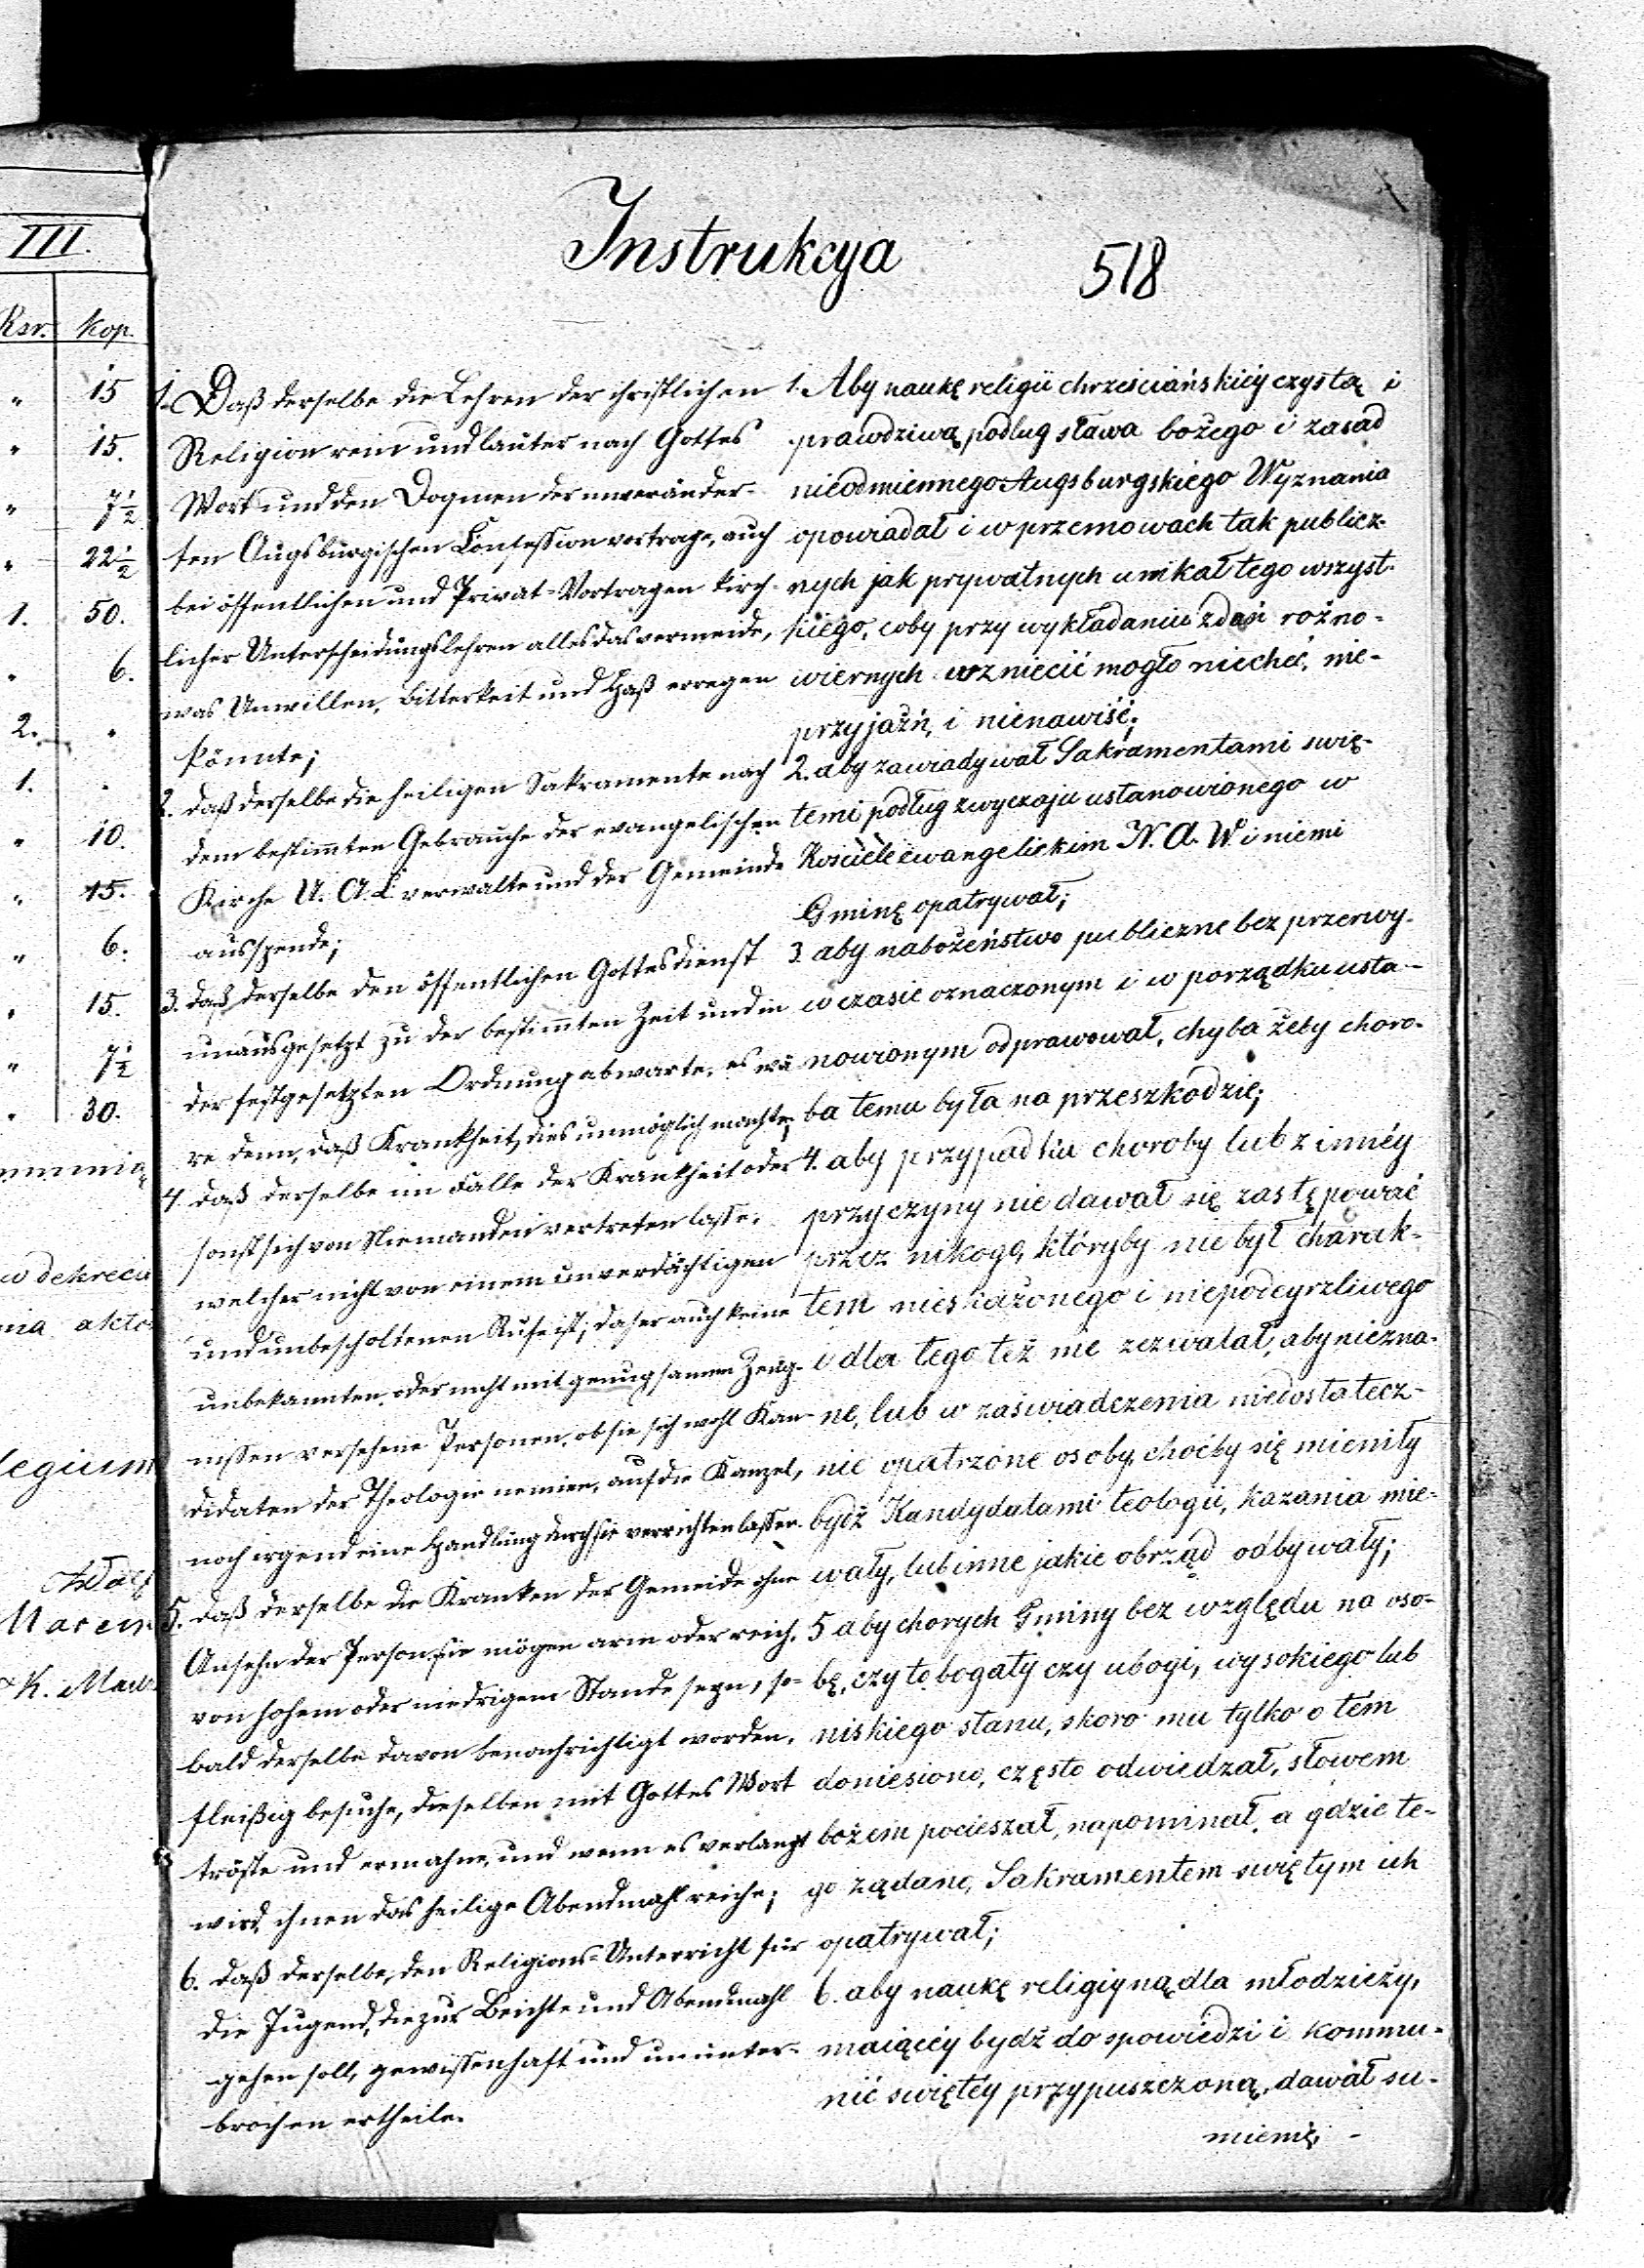 III.
Rsr. Kop.
" 15
" 15.
" 7½
" 22½
1. 50.
" 6.
2. "
1. "
" 10.
" 15.
" 6.
" 15.
" 7½
" 30.
w dekrecie
legium
Instrukcya
518
1. Daß derselbe die Lehren der christlichen
Religion rein und lauter nach Gottes
Wort und den Dogmen der unveränder-
ten Augsburgischen Confession vortrage, auch
bei öffentlichen und Privat-Vortragen kirch-
licher Unterscheidungslehren alles das vermeide,
was Unwillen, Bitterkeit und Haß erregen
könnte;
2. daß derselbe die heiligen Sakramente nach
dem bestimten Gebrauche der evangelischen
Kirche U. A. C. verwalte und der Gemeinde
ausspende;
3. daß derselbe den öffentlichen Gottesdienst
unausgesetzt zu der bestimten Zeit und in
der festgesetzten Ordnung abwarte, es wä
re denn, daß Krankheit, dies unmöglich machte;
4. daß derselbe im Falle der Krankheit oder
sonst sich von Niemanden vertreten lasse,
welcher nicht von einem unverdächtigen
und unbescholtenen Rufe ist, daher auch keine
unbekannten oder nicht mit genugsamen Zeug-
nissen versehene Personen, ob sie sich wohl Kan-
didaten der Theologie nennen, auf die Kanzel,
noch irgend eine Handlung durch sie verrichten lassen.
5. daß derselbe die Kranken der Gemeide ohne
Ansehn der Person, sie mögen arm oder reich,
von hohem oder niedrigem Stande seyn, so-
bald derselbe davon benachrichtigt worden,
fleißig besuche, dieselben mit Gottes Wort
tröste und ermahne, und wenn es verlangt
wird, ihnen das heilige Abendmahl reiche;
6. daß derselbe, den Religions-Unterricht für
die Jugend, die zur Beichte und Abendmahl
gehen soll, gewissenhaft und ununter-
brochen ertheile.
1. Aby naukę religii chrześciańskiéy czystą i
prawdziwą, podług sława bożego i zasad
nieodmiennego Augsburgskiego Wyznania
opowiadał i w przemowach tak publicz-
nych jak prywatnych unikał tego wszyst-
kiego, coby przy wykładaniu zdań rożno-
wiernych wzniecić mogło niechęć, nie-
przyjaźń, i nienawiść;
2. aby zawiadywał Sakramentami swię-
temi podług zwyczaju ustanowionego w
Kościele ewangelickim N. A. W. i niemi
Gminę opatrywał;
3. aby nabożeństwo publiczne bez przerwy
w czasie oznaczonym i w porządku usta-
nowionym odprawował, chyba żeby choro-
ba temu była na przeszkodzie;
4. aby przypadku choroby lub z innéy
przyczyny nie dawał się zastępować
przez nikogo, któryby nie był charak-
tem nieskażonego i niepodeyrzliwego
i dla tego też nie zezwalał, aby niezna-
ne, lub w zaświadczenia niedostatecz-
nie opatrzone osoby, choćby się mieniły
bydź Kandydatami teologii, kazania mie-
wały, lub inne jakie obrząd odbywały;
5 aby chorych Gminy bez względu na oso-
bę, czy to bogaty czy ubogi, wysokiego lub
niskiego stanu, skoro mu tylko o tém
doniesiono, często odwiedzał, słowem
bożem pocieszał, napominał, a gdzie te-
go żądano, Sakramentem świętym ich
opatrywał;
6. aby naukę religiyną dla młodzieży,
maiącéy bydź do spowiedzi i kommu-
nii świętéy przypuszczoną, dawał su-
miennie,